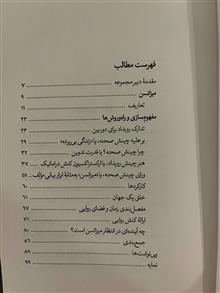 فهرست مطالب
مقدمهٔ دبیر مجموعه ۷
میزانسن ۹
تعاریف ۱۱
مفهوم‌سازی و راهوروش‌ها ۲۳
تدارک رویداد برای دوربین ۲۳
بر علیه چینش صحنه؟ یا «زندگی بی‌پرده» ۲۹
چرا چینش صحنه؟ یا قدرت تدوین ۳۳
هنر چینش رویداد: یا ارکستراسیون کنش دراماتیک ۳۷
ورای چینش صحنه: یا «میزانسن» به‌مثابهٔ ابزار بیانی مؤلف ۵۷
کارکردها ۶۰
خلق یک جهان ۶۱
مفصل‌بندی زمان و فضای روایی ۶۷
ارائهٔ کنش روایی ۷۱
چه آینده‌ای در انتظار میزانسن است؟ ۸۰
جمع‌بندی ۸۶
پی‌نوشت‌ها ۸۷
نمایه ۹۹